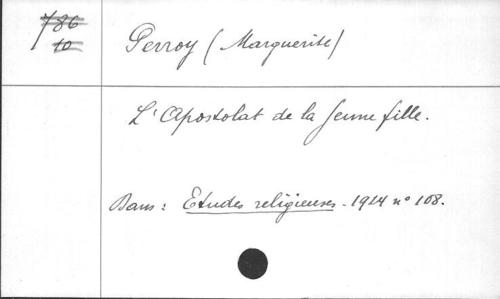 786
10
Perroy (Marguerite)
L'Apostolat de la Jeune fille.
Dans: Etudes religieuses. 1914 nº 108.